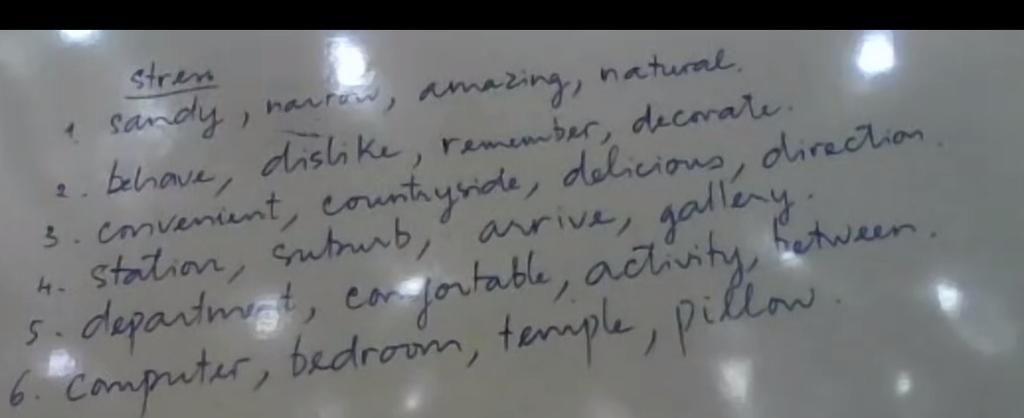 stress
1. sandy, narrow, amazing, natural.
2. behave, dislike, remember, decorate.
3. convenient, countryside, delicious, direction.
4. station, suburb, arrive, gallery.
5. department, comfortable, activity, between.
6. computer, bedroom, temple, pillow.